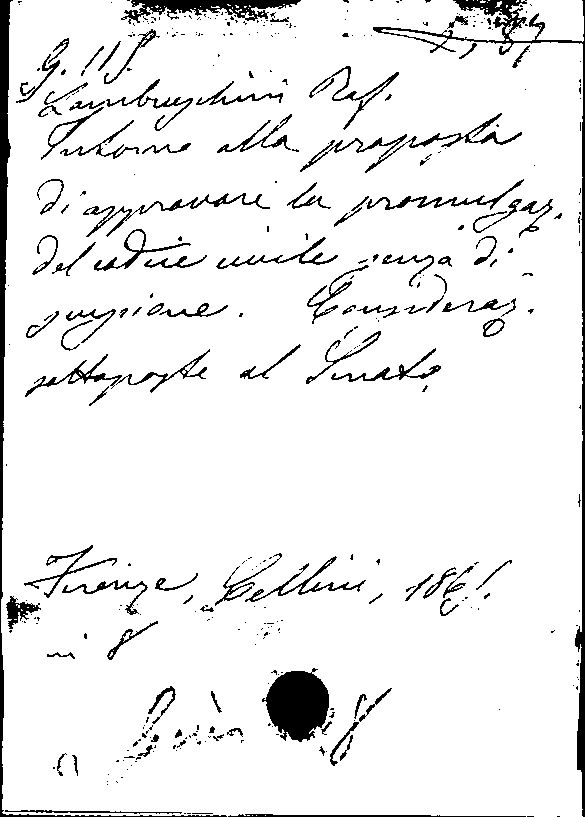 G. 115.
Lambruschini Raf.
Intorno alla proposta
di approvare la promulgaz.
del codice civile senza di-
scussione. Consideraz.
sottoposte al Senato.
Firenze, Cellini, 1865.
in 8